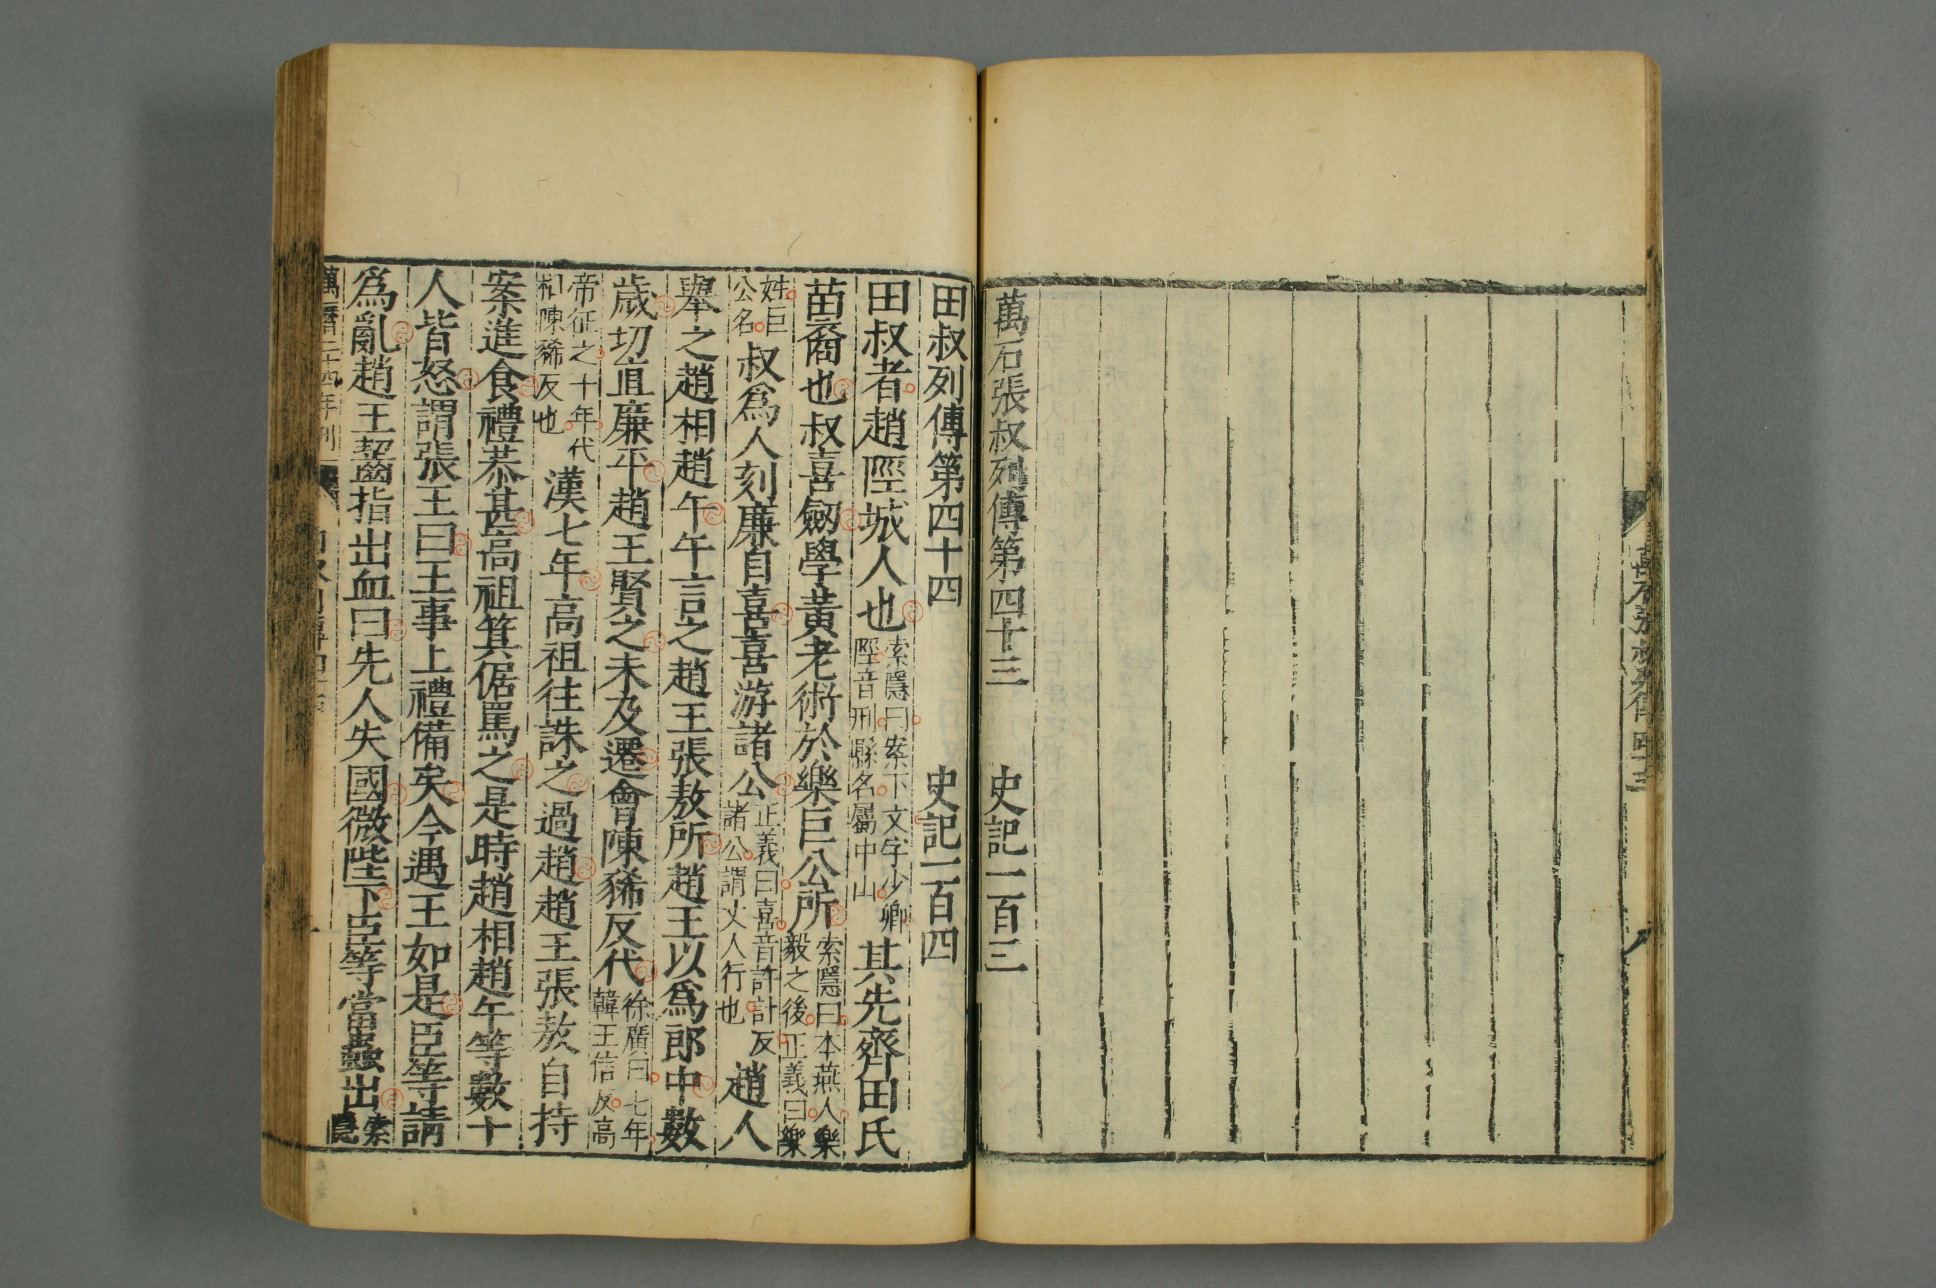 萬石張叔列傳第四十三 史記一百三
田叔列傳第四十四 史記一百四
田叔者趙陘城人也索隱曰案下文字少卿陘音刑縣名屬中山其先齊田氏
苗裔也叔喜劒學黃老術於樂巨公所索隱曰本燕人樂毅之後正義曰樂
姓巨公名叔爲人刻廉自喜喜游諸公正義曰喜音許計反諸公謂丈人行也趙人
舉之趙相趙午午言之趙王張敖所趙王以爲郎中數
歲切直廉平趙王賢之未及遷會陳豨反代徐廣曰七年韓王信反高
帝征之十年代相陳豨反也漢七年高祖往誅之過趙趙王張敖自持
案進食禮恭甚高祖箕倨罵之是時趙相趙午等數十
人皆怒謂張王曰王事上禮備矣今遇王如是臣等請
爲亂趙王齧指出血曰先人失國微陛下臣等當蟲出索隱
萬曆二十四年刊